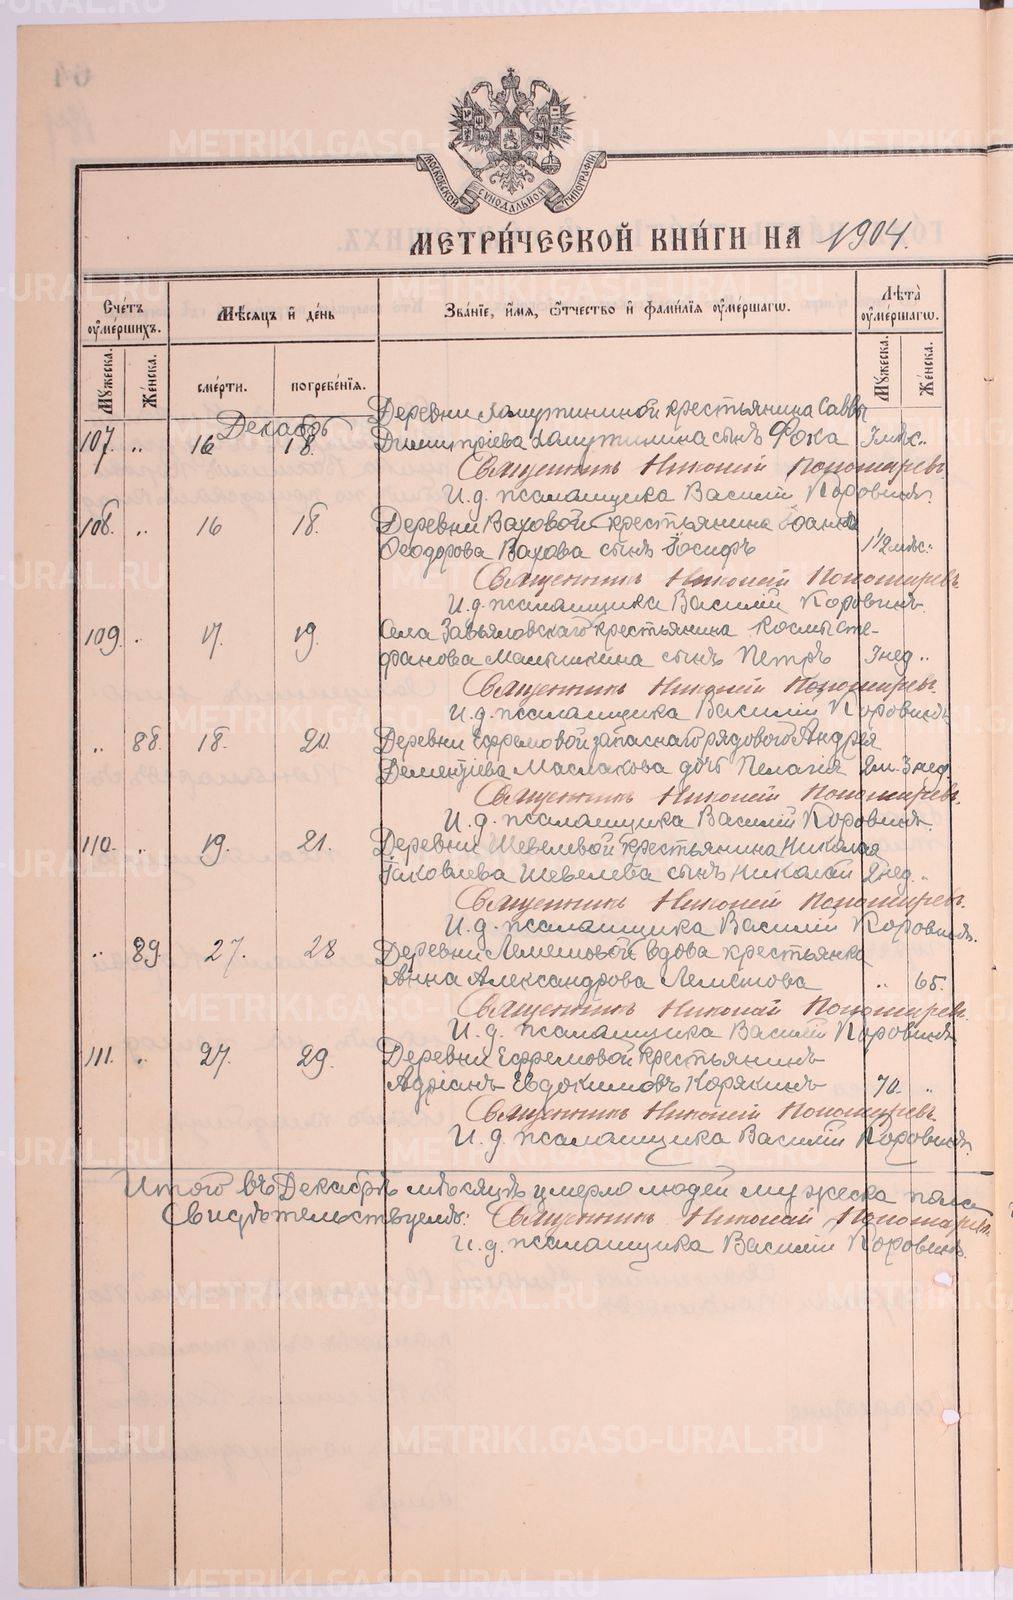 МОСКОВСКОЙ СИНОДАЛЬНОЙ ТИПОГРАФІИ
МЕТРИ́ЧЕСКОЙ КНИ́ГИ НА 1904.
Сче́тъ ᲂумершихъ.
Мѣсяцъ и день
Зва́ніе, и́мя, ѻ҆́тчество и фами́лія ᲂуме́ршагѡ.
Лѣта̀ ᲂуме́ршагѡ.
Му́жеска.
Же́нска.
сме́рти.
погребе́нія.
Му́жеска.
Же́нска.
Декабрь
Деревни Лапутининой крестьянина Саввы
107. „ 16 18. Димитріева Лапутинина сынъ Фока 3 мѣс.
Священникъ Николай Пономаревъ
И. д. псаломщика Василій Коровинъ.
108. „ 16 18. Деревни Ваховой крестьянина Іоанна
Ѳеодорова Вахова сынъ Іосифъ 1½ мѣс.
Священникъ Николай Пономаревъ
И. д. псаломщика Василій Коровинъ.
109. „ 17. 19. Села Завьяловскаго крестьянина Космы Сте-
фанова Малышкина сынъ Петръ 3 нед. „
Священникъ Николай Пономаревъ.
И. д. псаломщика Василій Коровинъ
„ 88. 18. 20. Деревни Ефремовой запаснаго рядового Андрея
Дементіева Маслакова дочь Пелагія 2 м. 3 нед.
Священникъ Николай Пономаревъ.
И. д. псаломщика Василій Коровинъ.
110. „ 19. 21. Деревни Шевелевой крестьянина Николая
Іаковлева Шевелева сынъ Николай 2 нед. „
Священникъ Николай Пономаревъ.
И. д. псаломщика Василій Коровинъ.
„ 89. 27. 28 Деревни Лемешовой вдова крестьянка
Анна Александрова Лемешова „ 65.
Священникъ Николай Пономаревъ.
И. д. псаломщика Василій Коровинъ
111. „ 27. 29. Деревни Ефремовой крестьянинъ
Адріанъ Евдокимовъ Корякинъ 70. „
Священникъ Николай Пономаревъ
И. д. псаломщика Василій Коровинъ.
Итого въ Декабрѣ мѣсяцѣ умерло людей мужеска пола
Свидѣтельствуемъ: Священникъ Николай Пономаревъ.
И. д. псаломщика Василій Коровинъ.
METRIKI.GASO-URAL.RU